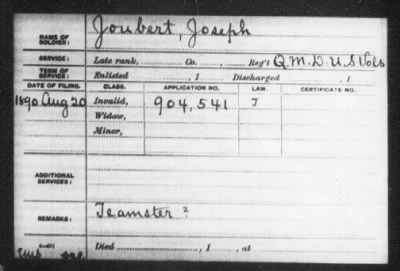 NAME OF SOLDIER: Joubert, Joseph
SERVICE: Late rank, Co. , Reg't Q.M.D. U.S. Vols
TERM OF SERVICE: Enlisted , 1 Discharged , 1
DATE OF FILING. CLASS. APPLICATION NO. LAW. CERTIFICATE NO.
1890 Aug 20 Invalid, 904,541 J
Widow,
Minor,
ADDITIONAL SERVICES:
REMARKS: Teamster ?
Died , 1 , at